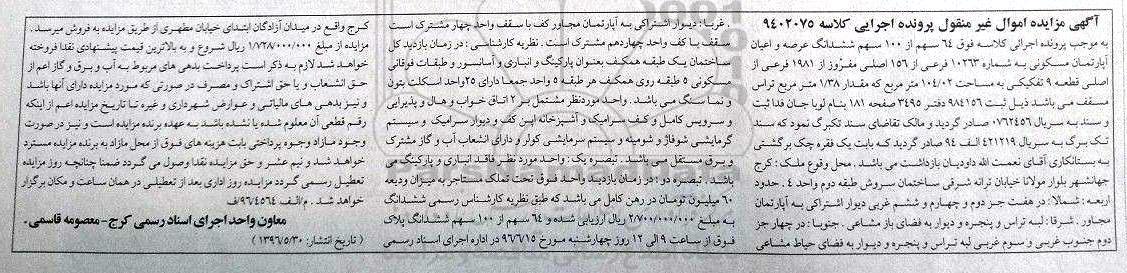 آگهی مزایده اموال غیر منقول پرونده اجرایی کلاسه ۹۴۰۲۰۷۵
به موجب پرونده اجرائی کلاسه فوق ۶۴ سهم از ۱۰۰ سهم ششدانگ عرصه و اعیان
آپارتمان مسکونی به شماره ۱۰۲۶۳ فرعی از ۱۵۶ اصلی مفروز از ۱۹۸۱ فرعی از
اصلی قطعه ۹ تفکیکی به مساحت ۱۰۴/۰۲ متر مربع که مقدار ۱/۳۸ متر مربع تراس
مسقف می باشد ذیل ثبت ۹۸۴۱۵۶ دفتر ۳۴۹۵ صفحه ۱۸۱ بنام لویا جان فدا ثبت
و سند به سریال ۰۷۶۲۴۵۶ صادر گردید و مالک تقاضای سند تکبرگ نمود که سند
تک برگ به سریال ۴۲۱۲۱۹ الف ۹۴ صادر گردید که بابت یک فقره چک برگشتی
به بستانکاری آقای نعمت الله داودیان بازداشت می باشد . محل وقوع ملک : کرج
جهانشهر بلوار مولانا خیابان ترانه شرقی ساختمان سروش طبقه دوم واحد ۴ . حدود
اربعه : شمالا : در هفت جز دوم و چهارم و ششم غربی دیوار اشتراکی به آپارتمان
مجاور . شرقا : لبه تراس و پنجره و دیوار به فضای باز مشاعی . جنوبا : در چهار جز
دوم جنوب غربی و سوم غربی لبه تراس و پنجره و دیوار به فضای حیاط مشاعی
. غربا : دیوار اشتراکی به آپارتمان مجاور کف با سقف واحد چهار مشترک است
سقف با کف واحد چهاردهم مشترک است . نظریه کارشناسی : در زمان بازدید کل
ساختمان یک طبقه همکف بعنوان پارکینگ و انباری و آسانسور و طبقات فوقانی
مسکونی ۵ طبقه روی همکف هر طبقه ۵ واحد جمعا دارای ۲۵واحد اسکلت بتون
و نما سنگ می باشد . واحد موردنظر مشتمل بر ۲ اتاق خواب و هال و پذیرایی
و سرویس کامل و کف سرامیک و آشپزخانه اپن کف و دیوار سرامیک و سیستم
گرمایشی شوفاژ و شومینه و سیستم سرمایشی کولر و دارای انشعاب آب و گاز مشترک
و برق مستقل می باشد . تبصره یک : واحد مورد نظر فاقد انباری و پارکینگ می
باشد . تبصره دو : در زمان بازدید واحد فوق تحت تملک مستاجر به میزان ودیعه
۶۰ میلیون تومان در رهن کامل می باشد که طبق نظریه کارشناس رسمی ششدانگ
به مبلغ ۲/۷۰۰/۰۰۰/۰۰۰ ریال ارزیابی شده و ۶۴ سهم از ۱۰۰ سهم ششدانگ پلاک
فوق از ساعت ۹ الی ۱۲ روز چهارشنبه مورخ ۹۶/۶/۱۵ در اداره اجرای اسناد رسمی
کرج واقع در میدان آزادگان ابتدای خیابان مطهری از طریق مزایده به فروش میرسد .
مزایده از مبلغ ۱/۷۲۸/۰۰۰/۰۰۰ ریال شروع و به بالاترین قیمت پیشنهادی نقدا فروخته
خواهد شد لازم به ذکر است پرداخت بدهی های مربوط به آب و برق و گاز اعم از
حق انشعاب و یا حق اشتراک و مصرف در صورتی که مورد مزایده دارای آنها باشد
و نیز بدهی های مالیاتی و عوارض شهرداری و غیره تا تاریخ مزایده اعم از اینکه
رقم قطعی آن معلوم شده یا نشده باشد به عهده برنده مزایده است و نیز در صورت
وجود مازاد وجوه پرداختی بابت هزینه های فوق از محل مازاد به برنده مزایده مسترد
خواهد شد و نیم عشر و حق مزایده نقدا وصول می گردد ضمنا چنانچه روز مزایده
تعطیل رسمی گردد مزایده روز اداری بعد از تعطیلی در همان ساعت و مکان برگزار
خواهد شد . م/الف ۹۶/۴۵۶۴/ف
معاون واحد اجرای اسناد رسمی کرج-معصومه قاسمی.
( تاریخ انتشار : ۱۳۹۶/۵/۳۰ )